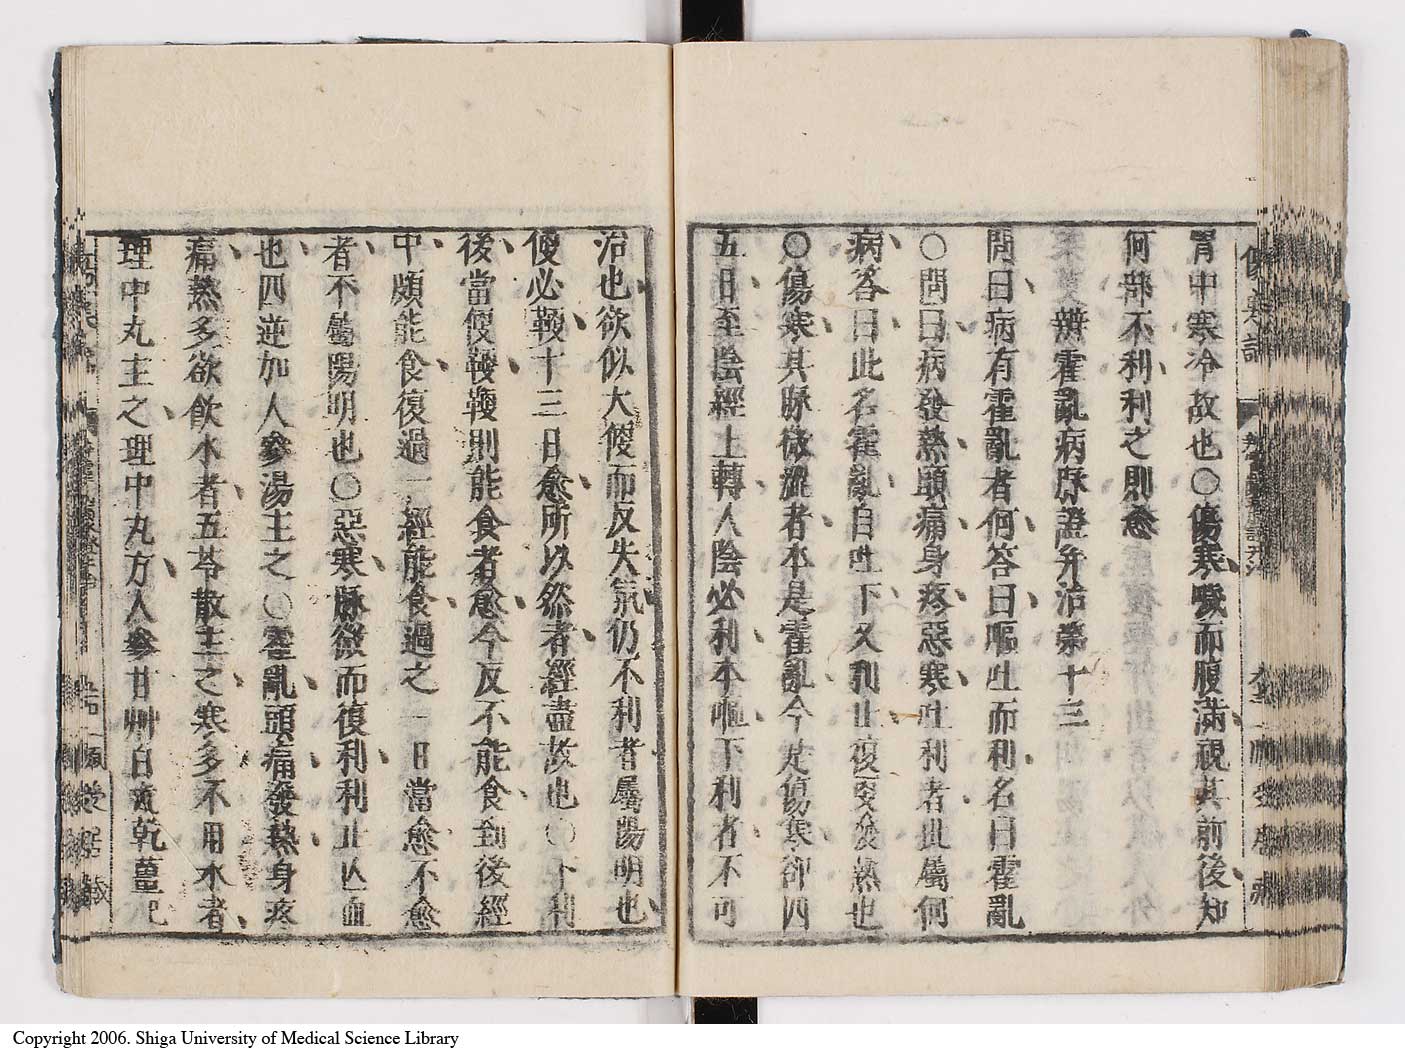 胃中寒冷故也○傷寒噦而腹滿視其前後知
何部不利利之則愈
辨霍亂病脉證并治第十三
問曰病有霍亂者何答曰嘔吐而利名曰霍亂
○問曰病發熱頭痛身疼惡寒吐利者此屬何
病答曰此名霍亂自吐下又利止復更發熱也
○傷寒其脉微澀者本是霍亂今是傷寒卻四
五日至陰經上轉入陰必利本嘔下利者不可
治也欲似大便而反失氣仍不利者屬陽明也
便必鞕十三日愈所以然者經盡故也○下利
後當便鞕鞕則能食者愈今反不能食到後經
中頗能食復過一經能食過之一日當愈不愈
者不屬陽明也○惡寒脉微而復利利止亡血
也四逆加人參湯主之○霍亂頭痛發熱身疼
痛熱多欲飲水者五苓散主之寒多不用水者
理中丸主之理中丸方人參甘艸白朮乾薑
Copyright 2006. Shiga University of Medical Science Library